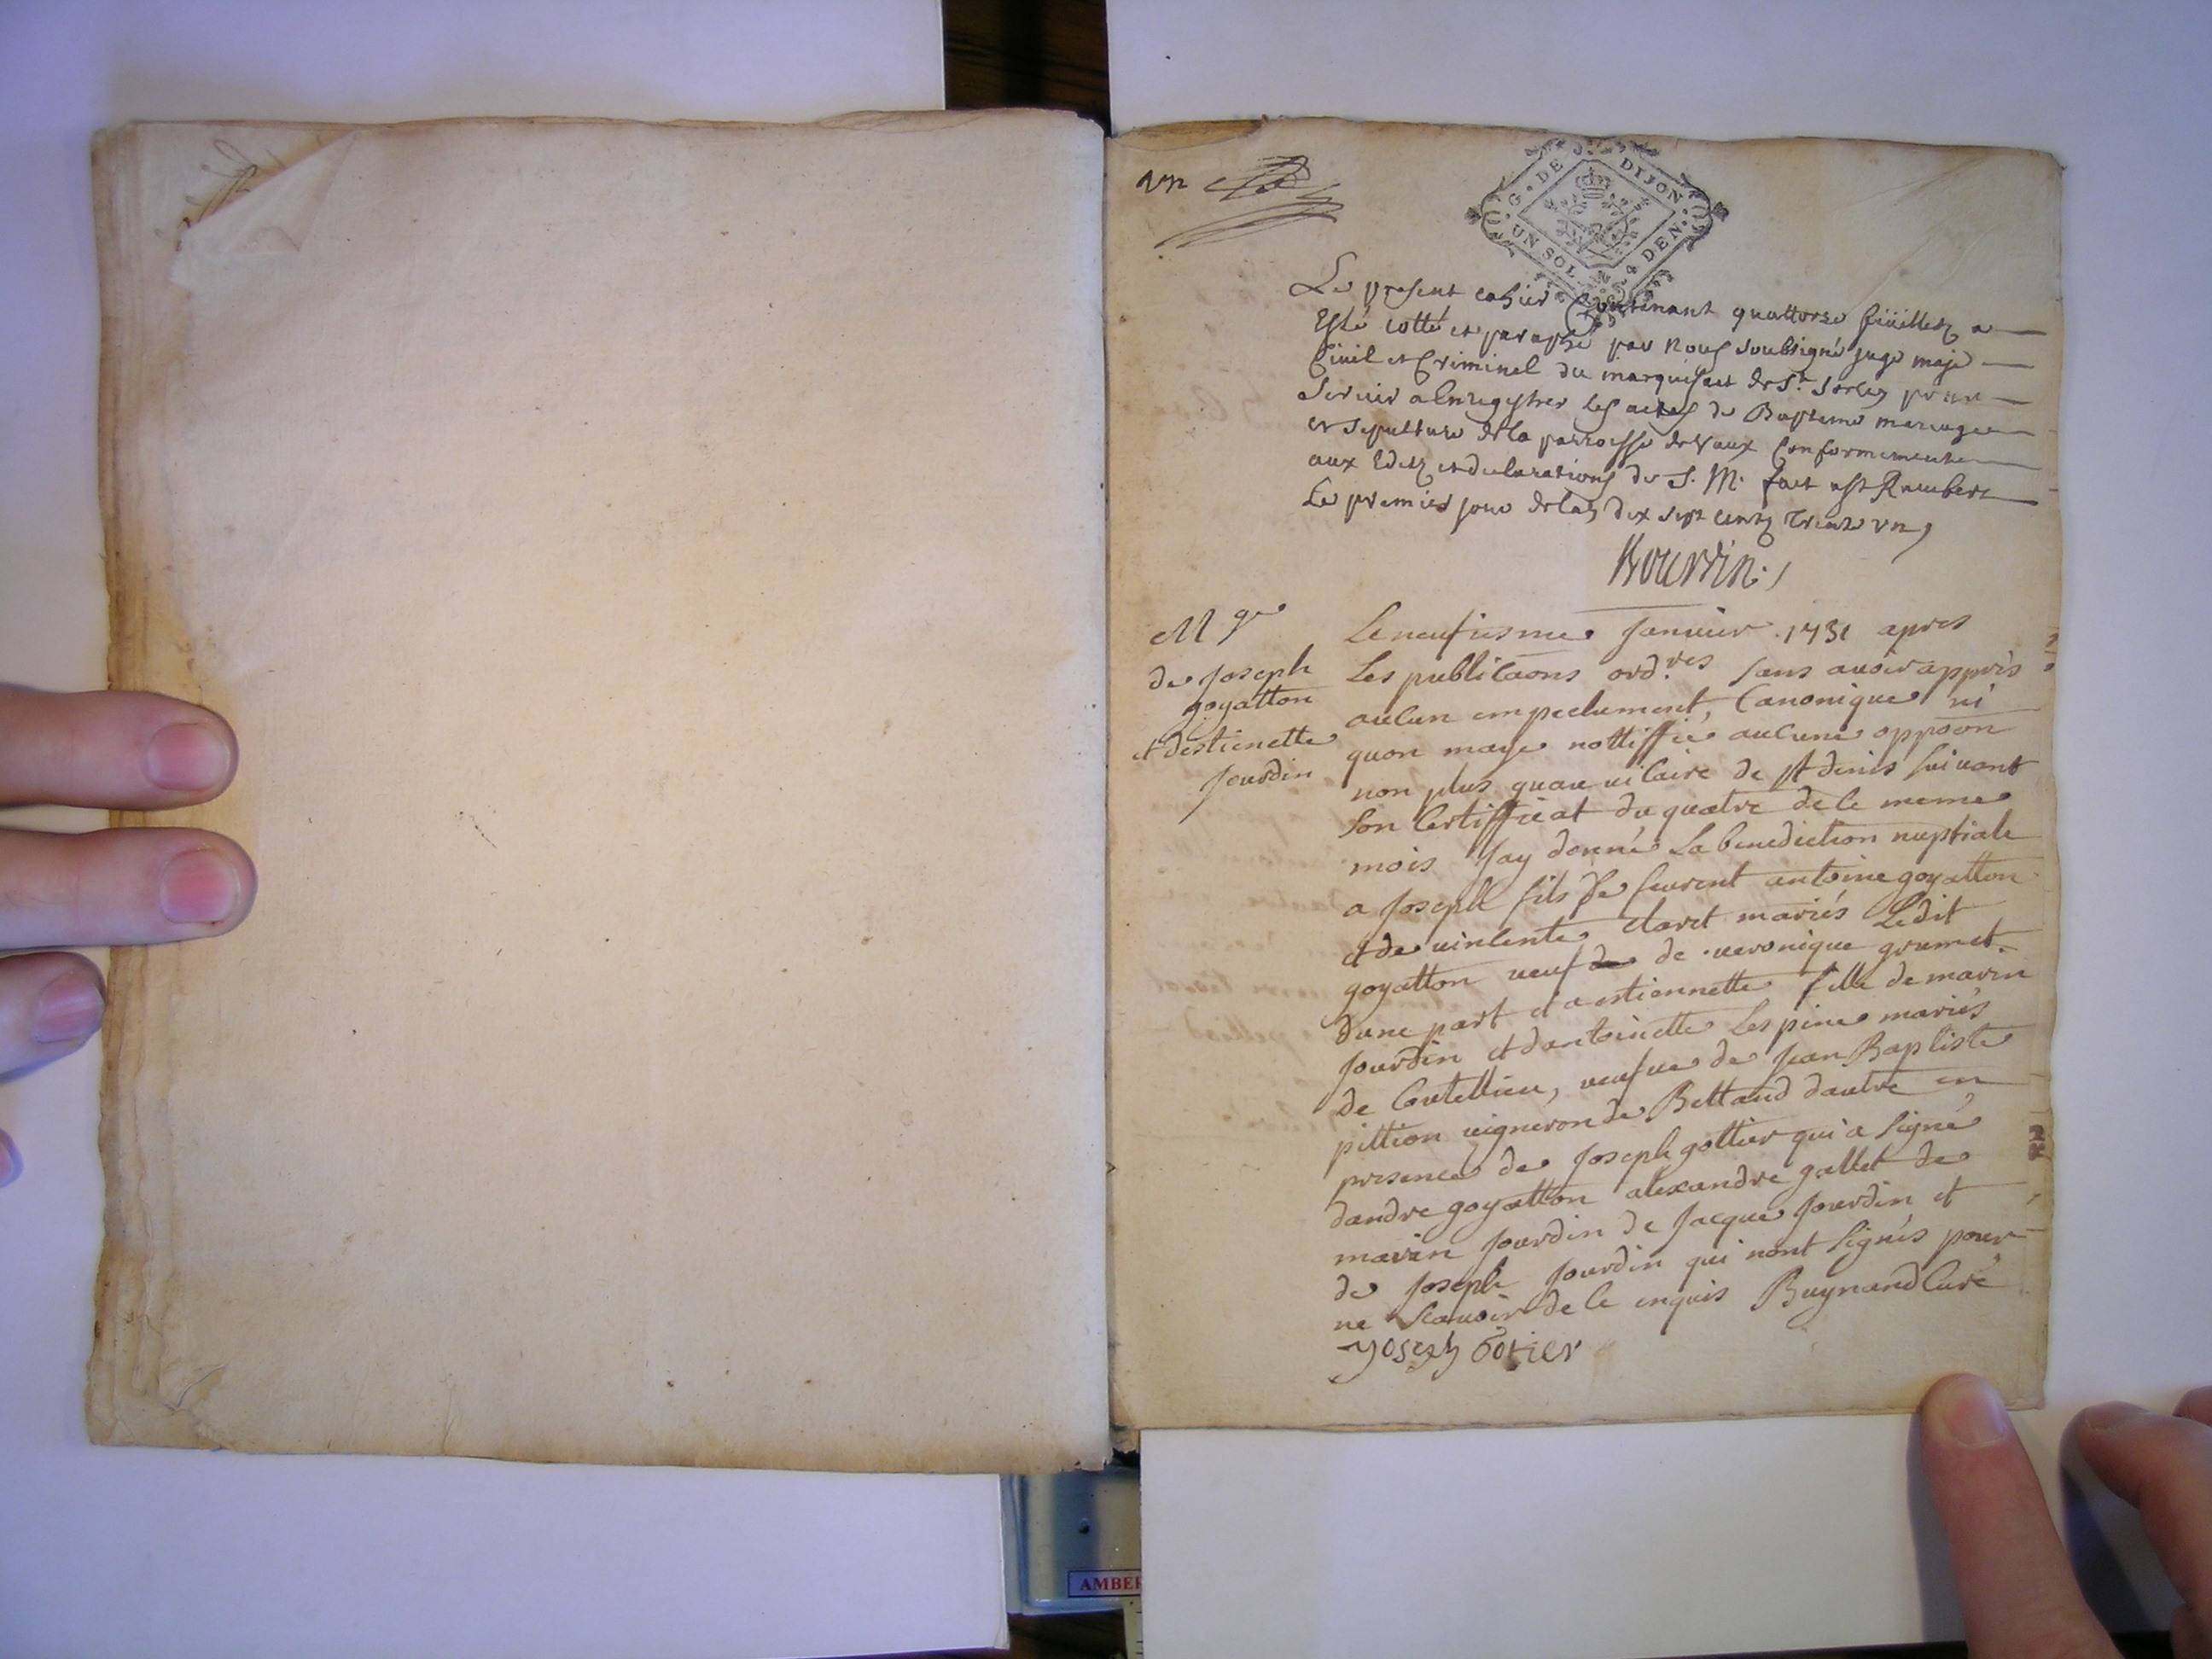 vn
G. DE DIJON
UN SOL 4 DEN.
Le present cahier Contenant quattorze feüillets a
Esté cotté et paraphé par nous soubsigné juge maje
Civil et Criminel du marquisat de St. Sorlin pour
servir a Enregistrer les actes de Bapteme mariage
et sepulture de la parroisse de Vaux Conformement
aux Edits et declarations de S. M. fait a St Rambert
Le premier jour de lan dix sept cents Trente vn,
Bourdin
Mge
de joseph
goyatton
et destienette
jourdin
Le neufiesme janvier .1731 apres
Les publicaons ord.res sans avoir appris
aucun empechement, Canonique ni
quon maye nottiffié aucune oppoon
non plus quau vicaire de St denis suivant
son Certifficat du quatre de ce meme
mois jay donné La benediction nuptiale
a joseph fils de feurent antoine goyatton
et de vincente claret mariés Ledit
goyatton veuf de veronique grumet.
dune part et a estiennette fille de marin
jourdin et dantoinette Lespine mariés
de Coutellieu, veufve de jean Baptiste
pittion vigneron de Bettand dautre en
presence de joseph gottier qui a signé
dandre goyatton alexandre gallet de
marin jourdin de jacque jourdin et
de joseph jourdin qui nont signés pour
ne scavoir de ce enquis Buynand Curé
joseph Gotier
AMBER